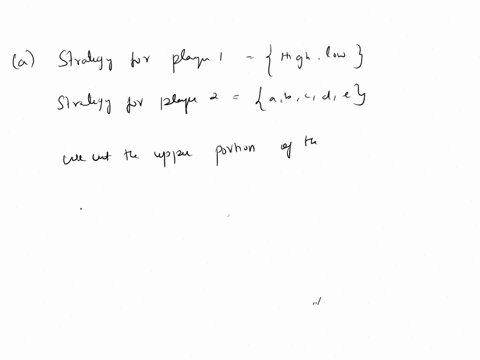 (a) Strategy for player 1 = { High, low }
Strategy for player 2 = { a, b, c, d, e }
we cut the upper portion of the